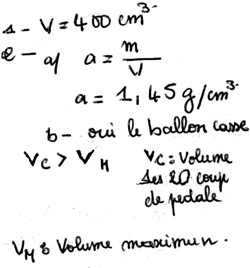 1 - V = 400 cm³
2 - a/ a = m/V
a = 1,45 g/cm³
b - oui le ballon casse
Vc > VM
Vc = Volume
des 20 coup
de pedale
VM = Volume maximum.